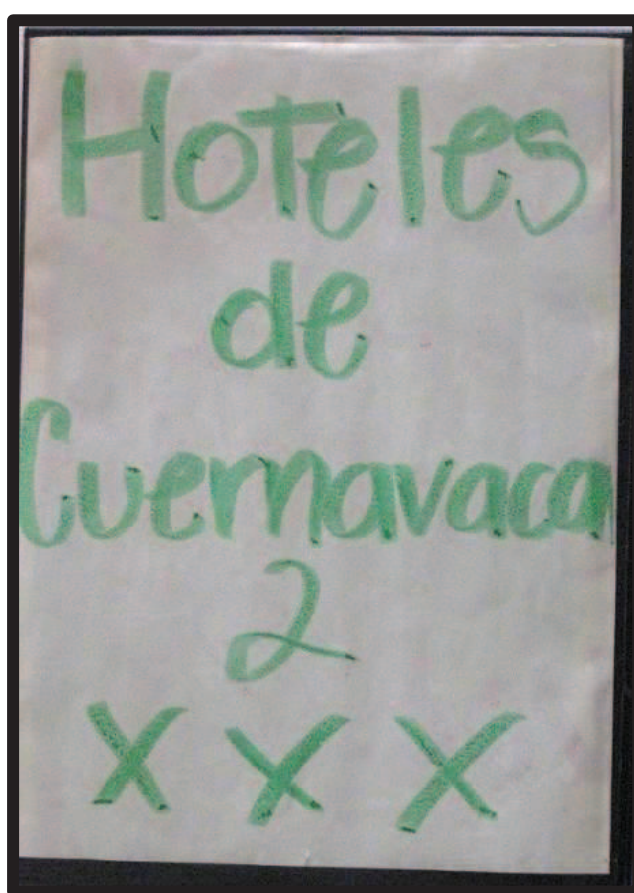 Hoteles
de
Cuernavaca
2
XXX